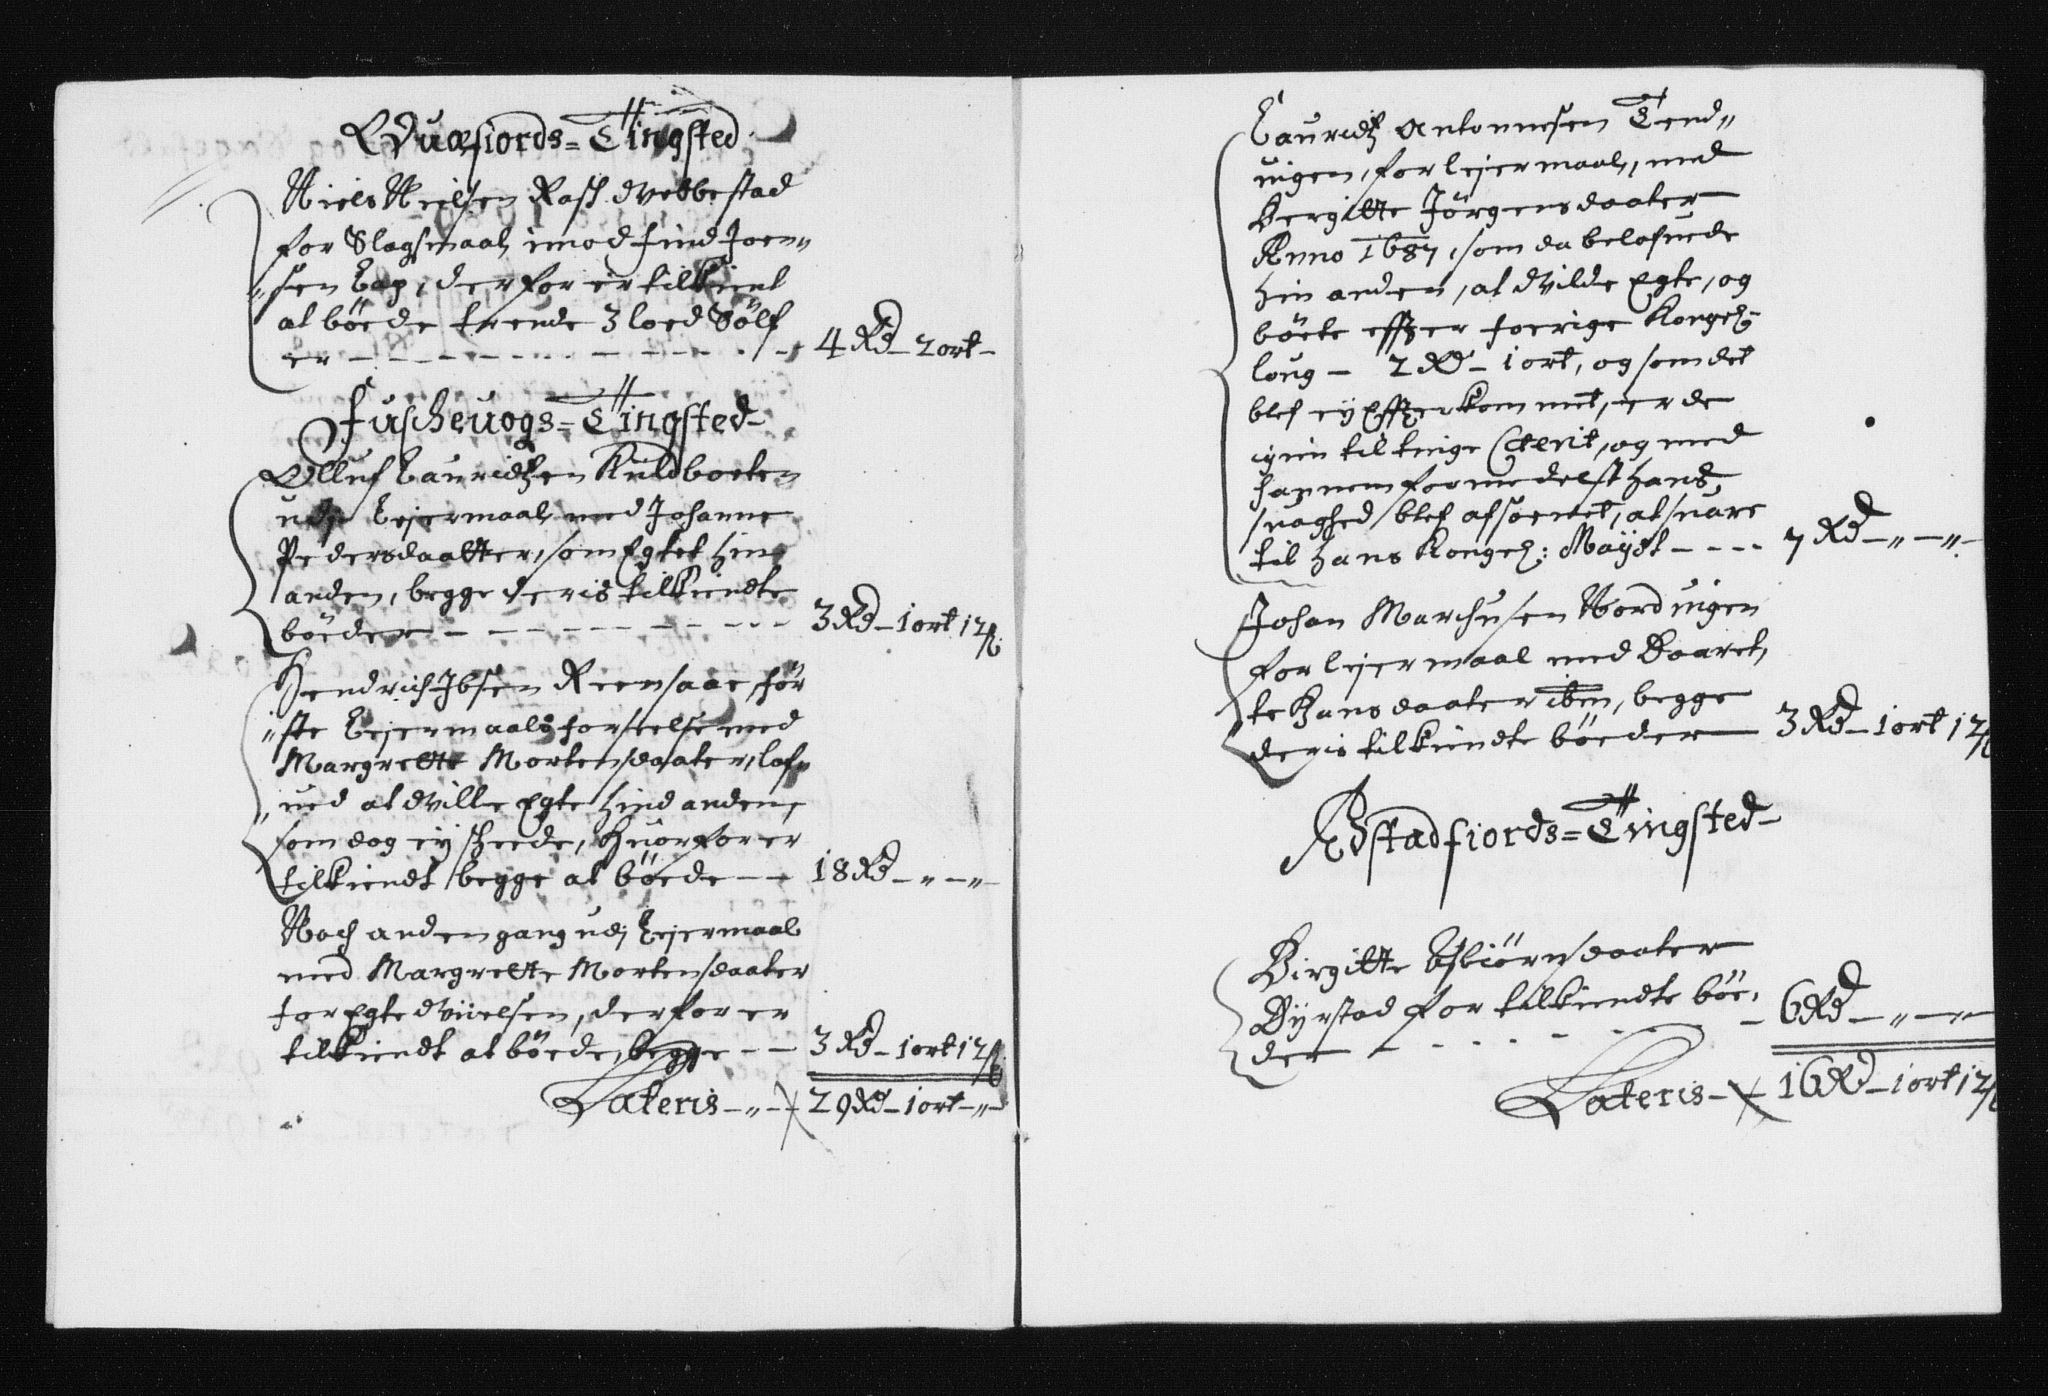 Quæfiords= Tingsted
Niels Nielsen Rasch Vebbestad
for Slagsmaal imod find Joen„
„sen Lap, derfor er tilkient
at böede trende 3 loed Sölf
er - - - - 4 Rd - 2 ort -
Fuscheuogs= Tingsted
Olluf Lauridtzen Kuldboeten
udj Lejermaal med Johanne
Pedersdaatter, som Egtet hin
anden, begge deris tilkiendte
böeder - - - - 3 Rd - 1 ort 12 ß
Hendrich Ibsen Reensaae, för
„ste Lejermaals forseelse med
Margrette Mortensdaater, lof„
„ued at Ville Egte hind anden,
som dog ej scheede, huorfor er
tilkiendt begge at böede - - 18 Rd - „ - „ -
Noch anden gang udj Lejermaal
med Margrette Mortensdaater
for Egteds
derfor er
tilkiendt at böede, begge - - 3 Rd - 1 ort 12 ß
Lateris - „ - 29 Rd - 1 ort - „ -
Lauridtz Antonnesen Tend„
uigen, for lejermaal, med
Bergitte Jörgensdaater
Anno 1687, som da belofuede
hin anden, at Vilde Egte, og
böete effter forrige Kongel:
loug - 2 Rd - 1 ort, og som det
blef ej Effterkommet, er de
igien til tinge Citerit, og med
hannem formedelst hans
suaghed blef afsoenet, at suare
til hans Kongel: Mayst - - - - 7 Rd - „ - „ -
Johan Marchusen Norduigen
for lejermaal med Baaret,
te Hansdaater ibm, begge
deris tilkiendte böeder 3 Rd - 1 ort 12 ß
Astadfiords= Tingsted -
Birgitte Asbiörnsdaater
Dyrstad for tilkiendte böe,
der - - - - 6 Rd - „ - „ -
Lateris - 16 Rd - 1 ort 12 ß